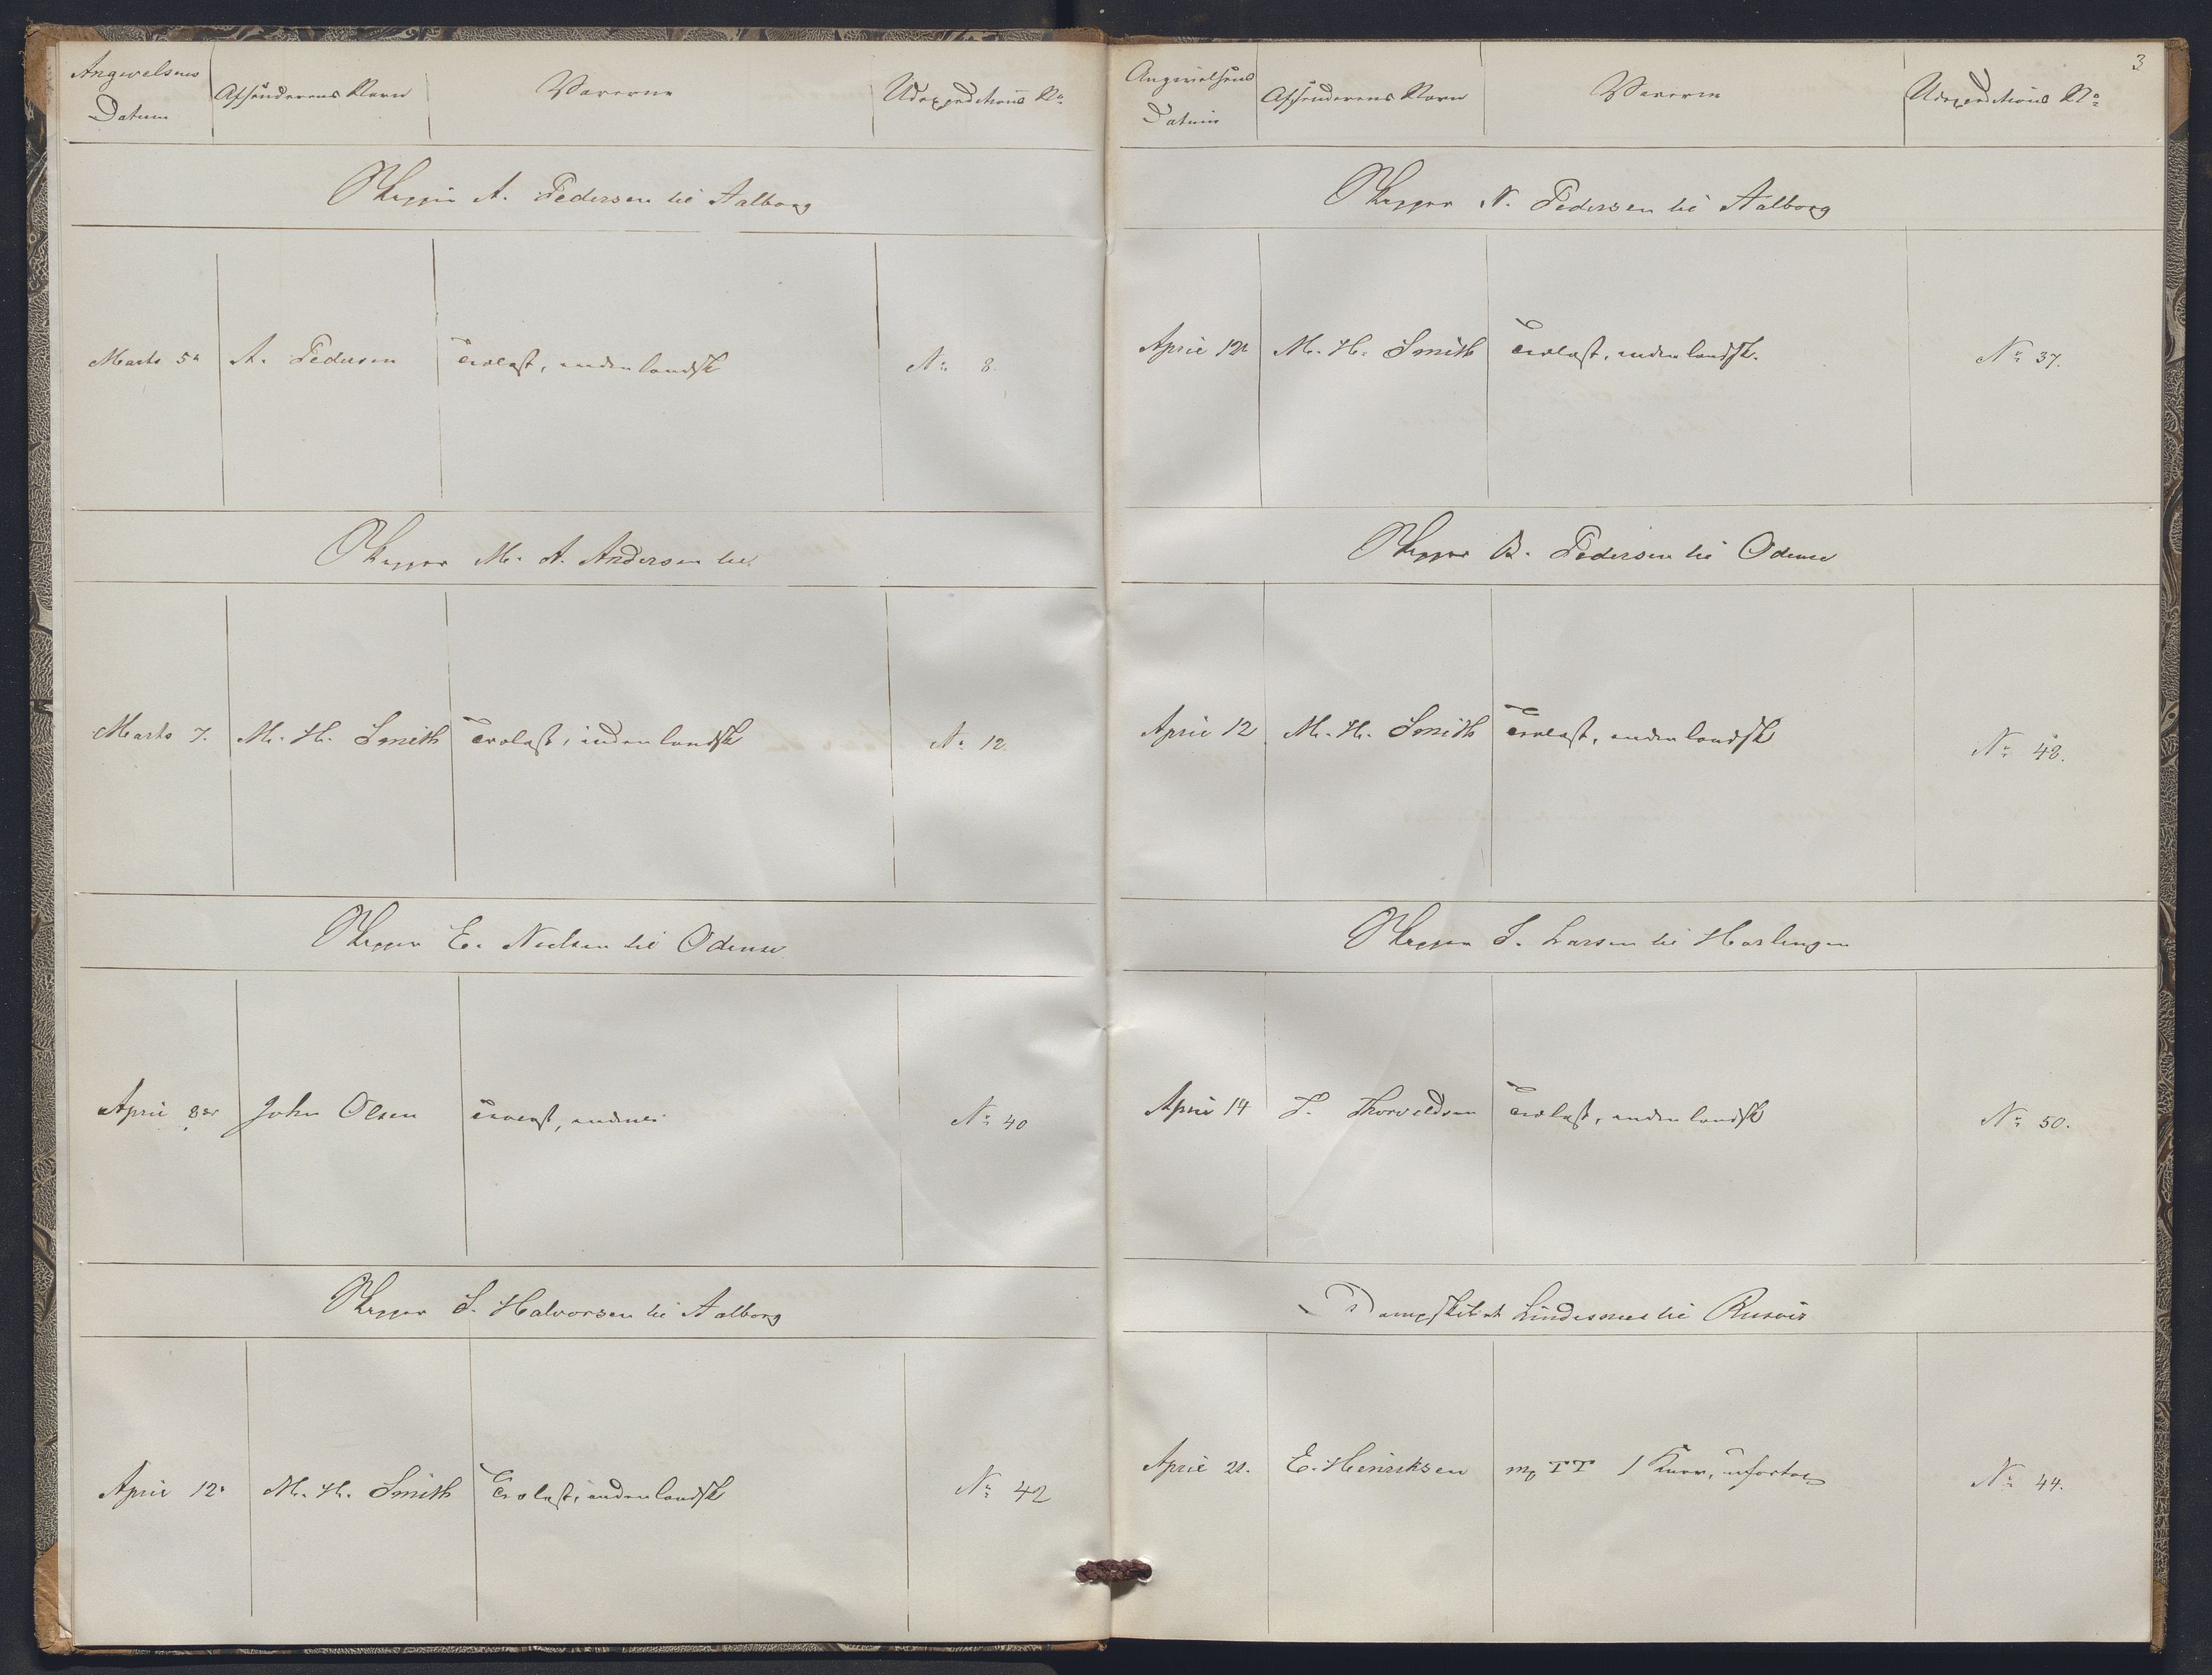 Angivelsens Datum | Afsenderens Navn | Varerne | Udexpeditions No
Skipper A. Pedersen til Aalborg
Marts 5 | A. Pedersen | Trælast, indenlandsk | No 8.
Skipper M. A. Andersen til
Marts 7. | M. H. Smith | Trælast, indenlandsk | No 12.
Skipper E. Nielsen til Odense
April 8 | John Olsen | Trælast, | No 40
Skipper S. Halvorsen til Aalborg
April 12. | M. H. Smith | Trælast, indenlandsk | No 42
3
Angivelsens Datum | Afsenderens Navn | Varerne | Udexpeditions No
Skipper N. Pedersen til Aalborg
April 12 | M. H. Smith | Trælast, indenlandsk. | No 37.
Skipper B. Pedersen til Odense
April 12 | M. H. Smith | Trælast, indenlandsk | No 48.
Skipper S. Larsen til Harlingen
April 14 | T. Thorvaldsen | Trælast, indenlandsk | No 50.
Dampskibet Lindesnes til Risøer
April 21. | E. Henriksen | TT 1 | No 44.